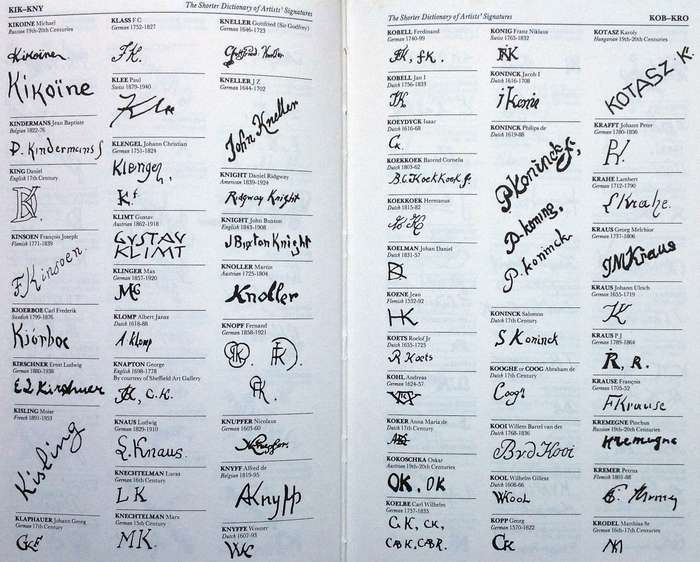 KIK–KNY
The Shorter Dictionary of Artists' Signatures
KIKOINE Michael
Russian 19th-20th centuries
Kikoïne
Kikoïne
KINDERMANS Jean Baptiste
Belgian 1822-76
D. Kindermans
KING Daniel
English 17th Century
KINSOEN François Joseph
Flemish 1771-1839
F Kinsoen.
KIOERBOE Carl Frederik
Swedish 1799-1876
Kiörboe
KIRSCHNER Ernst Ludwig
German 1880-1938
E L Kirchner
KISLING Moise
French 1891-1953
Kisling
KLAPHAUER Johann Georg
German 17th Century
KLASS F C
German 1752-1827
FK.
KLEE Paul
Swiss 1879-1940
Klee
KLENGEL Johann Christian
German 1751-1824
Klengel,
Kf
KLIMT Gustav
Austrian 1862-1918
GVSTAV
KLIMT
KLINGER Max
German 1857-1920
KLOMP Albert Jansz
Dutch 1618-88
A Klomp
KNAPTON George
English 1698-1778
By courtesy of Sheffield Art Gallery
GK, G.K.
KNAUS Ludwig
German 1829-1910
L. Knaus.
KNECHTELMAN Lucas
German 16th Century
LK
KNECHTELMAN Marx
German 16th Century
MK.
KNELLER Gottfried (Sir Godfrey)
German 1646-1723
Gottfried Kneller
KNELLER J Z
German 1644-1702
John Kneller
KNIGHT Daniel Ridgway
American 1839-1924
Ridgway Knight
KNIGHT John Buxton
English 1843-1908
J Buxton Knight
KNOLLER Martin
Austrian 1725-1804
Knoller
KNOPF Fernand
German 1858-1921
KNUPFER Nicolaus
German 1603-60
KNYFF Alfred de
Belgian 1819-95
AKnyff
KNYFFE Wouter
Dutch 1607-93
The Shorter Dictionary of Artists' Signatures
KOB–KRO
KOBELL Ferdinand
German 1740-99
FK, f.K.
KOBELL Jan I
Dutch 1756-1833
KOEDYCK Isaac
Dutch 1616-68
KOEKKOEK Barend Cornelis
Dutch 1803-62
B.C. Koekkoek f.
KOEKKOEK Hermanus
Dutch 1815-82
KOELMAN Johan Daniel
Dutch 1831-57
KOENE Jean
Flemish 1532-92
HK
KOETS Roelof Jr
Dutch 1655-1725
R Koets
KOHL Andreas
German 1624-57
KOKER Anna Maria de
Dutch 17th Century
KOKOSCHKA Oskar
Austrian 19th-20th Centuries
OK, OK
KOELBE Carl Wilhelm
German 1757-1835
CK, CK,
KONIG Franz Niklaus
Swiss 1765-1832
KONINCK Jacob I
Dutch 1616-1708
KONINCK Philips de
Dutch 1619-88
P Koninck
P. koning,
P. koninck
KONINCK Salomon
Dutch 17th Century
S Koninck
KOOGHE or COOG Abraham de
Dutch 17th Century
Coogh
KOOI Willem Bartel van der
Dutch 1768-1836
KOOL Willem Gillesz
Dutch 1608-66
WKOOL
KOPP Georg
German 1570-1622
KOTASZ Karoly
Hungarian 19th-20th Centuries
KOTASZ K.
KRAFFT Johann Peter
German 1780-1856
KRAHE Lambert
German 1712-1790
L Krahe.
KRAUS Georg Melchior
German 1737-1806
KRAUS Johann Ulrich
German 1655-1719
KRAUS P J
German 1789-1864
KRAUSE François
German 1705-52
FKrause
KREMEGNE Pinchus
Russian 19th-20th centuries
Kremegne
KREMER Petrus
Flemish 1801-88
KRODEL Matthias Sr
German 16th-17th Centuries